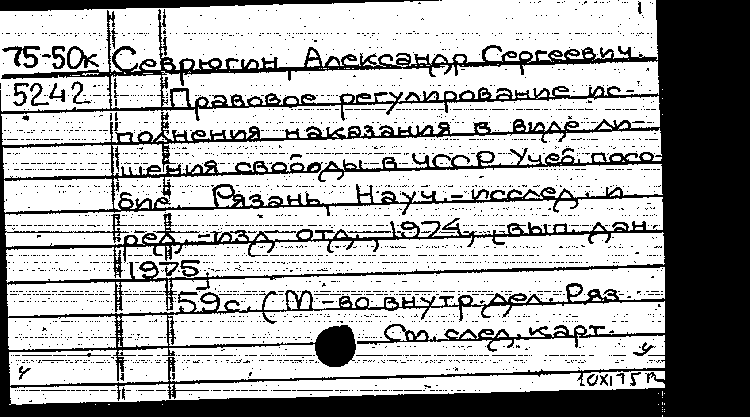 75-50к Севрюгин, Александр Сергеевич.
5242 Правовое регулирование ис-
полнения наказания в виде ли-
шения свободы в ЧССР. Учеб. посо-
бие. Рязань, Науч.-исслед. и
ред.-изд. отд., 1974, [вып. дан.
1975]
59 с. (М-во внутр. дел. Ряз.
См. след. карт.